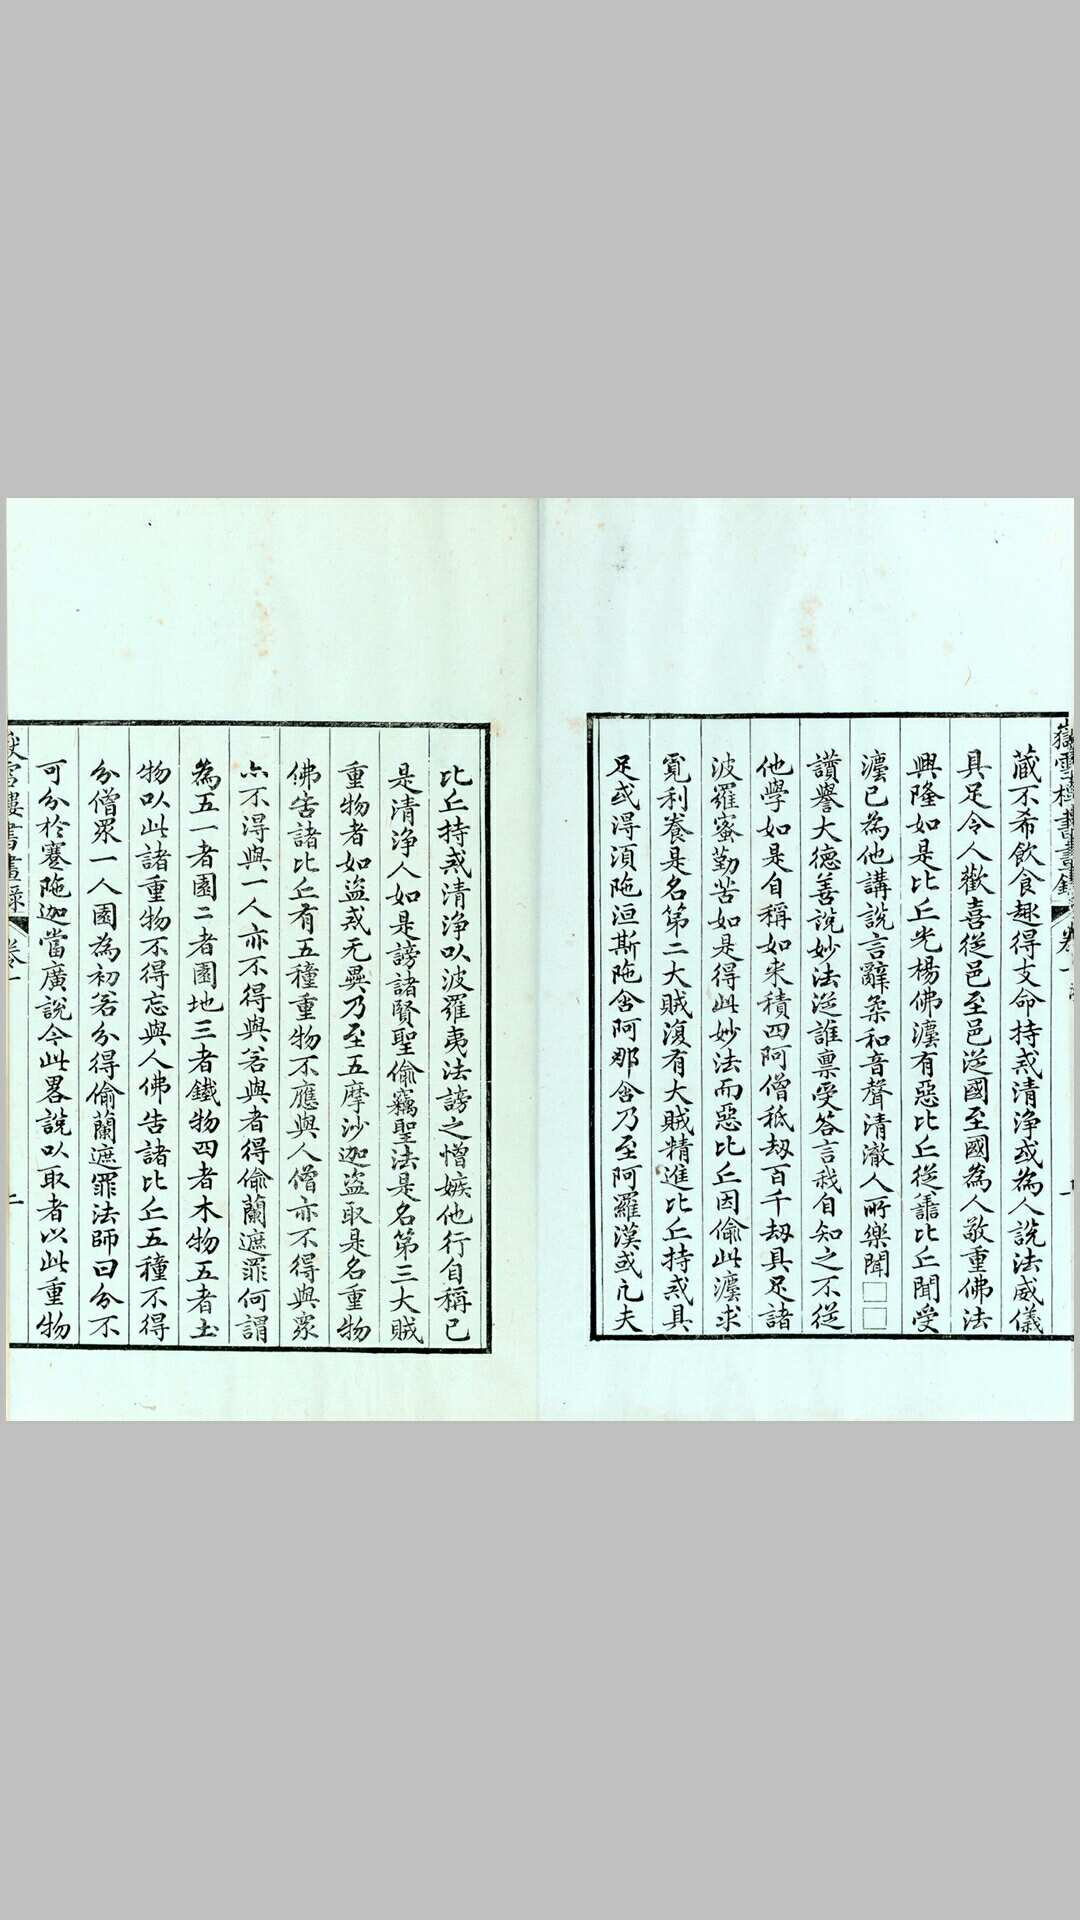 嶽雪樓書畫錄 卷一
藏不希飲食趣得支命持戒清淨或為人說法威儀
具足令人歡喜從邑至邑從國至國為人敬重佛法
興隆如是比丘光楊佛灋有惡比丘從善比丘聞受
灋已為他講說言辭柔和音聲清澈人所樂聞□□
讚譽大德善說妙法從誰禀受答言我自知之不從
他學如是自稱如来積四阿僧秪劫百千劫具足諸
波羅蜜勤苦如是得此妙法而惡比丘因偷此灋求
覓利養是名第二大賊復有大賊精進比丘持戒具
足或得湏陁洹斯陁含阿那含乃至阿羅漢或凡夫
比丘持戒清淨以波羅夷法謗之憎嫉他行自稱已
是清浄人如是謗諸賢聖偷竊聖法是名第三大賊
重物者如盜戒无異乃至五摩沙迦盜取是名重物
佛告諸比丘有五種重物不應與人僧亦不得與衆
亦不得與一人亦不得與若與者得偷蘭遮罪何謂
為五一者園二者園地三者鐵物四者木物五者土
物以此諸重物不得忘與人佛告諸比丘五種不得
分僧眾一人園為初若分得偷蘭遮罪法師曰分不
可分於蹇陁迦當廣說今此畧說以取者以此重物
嶽雪樓書畫錄 卷一